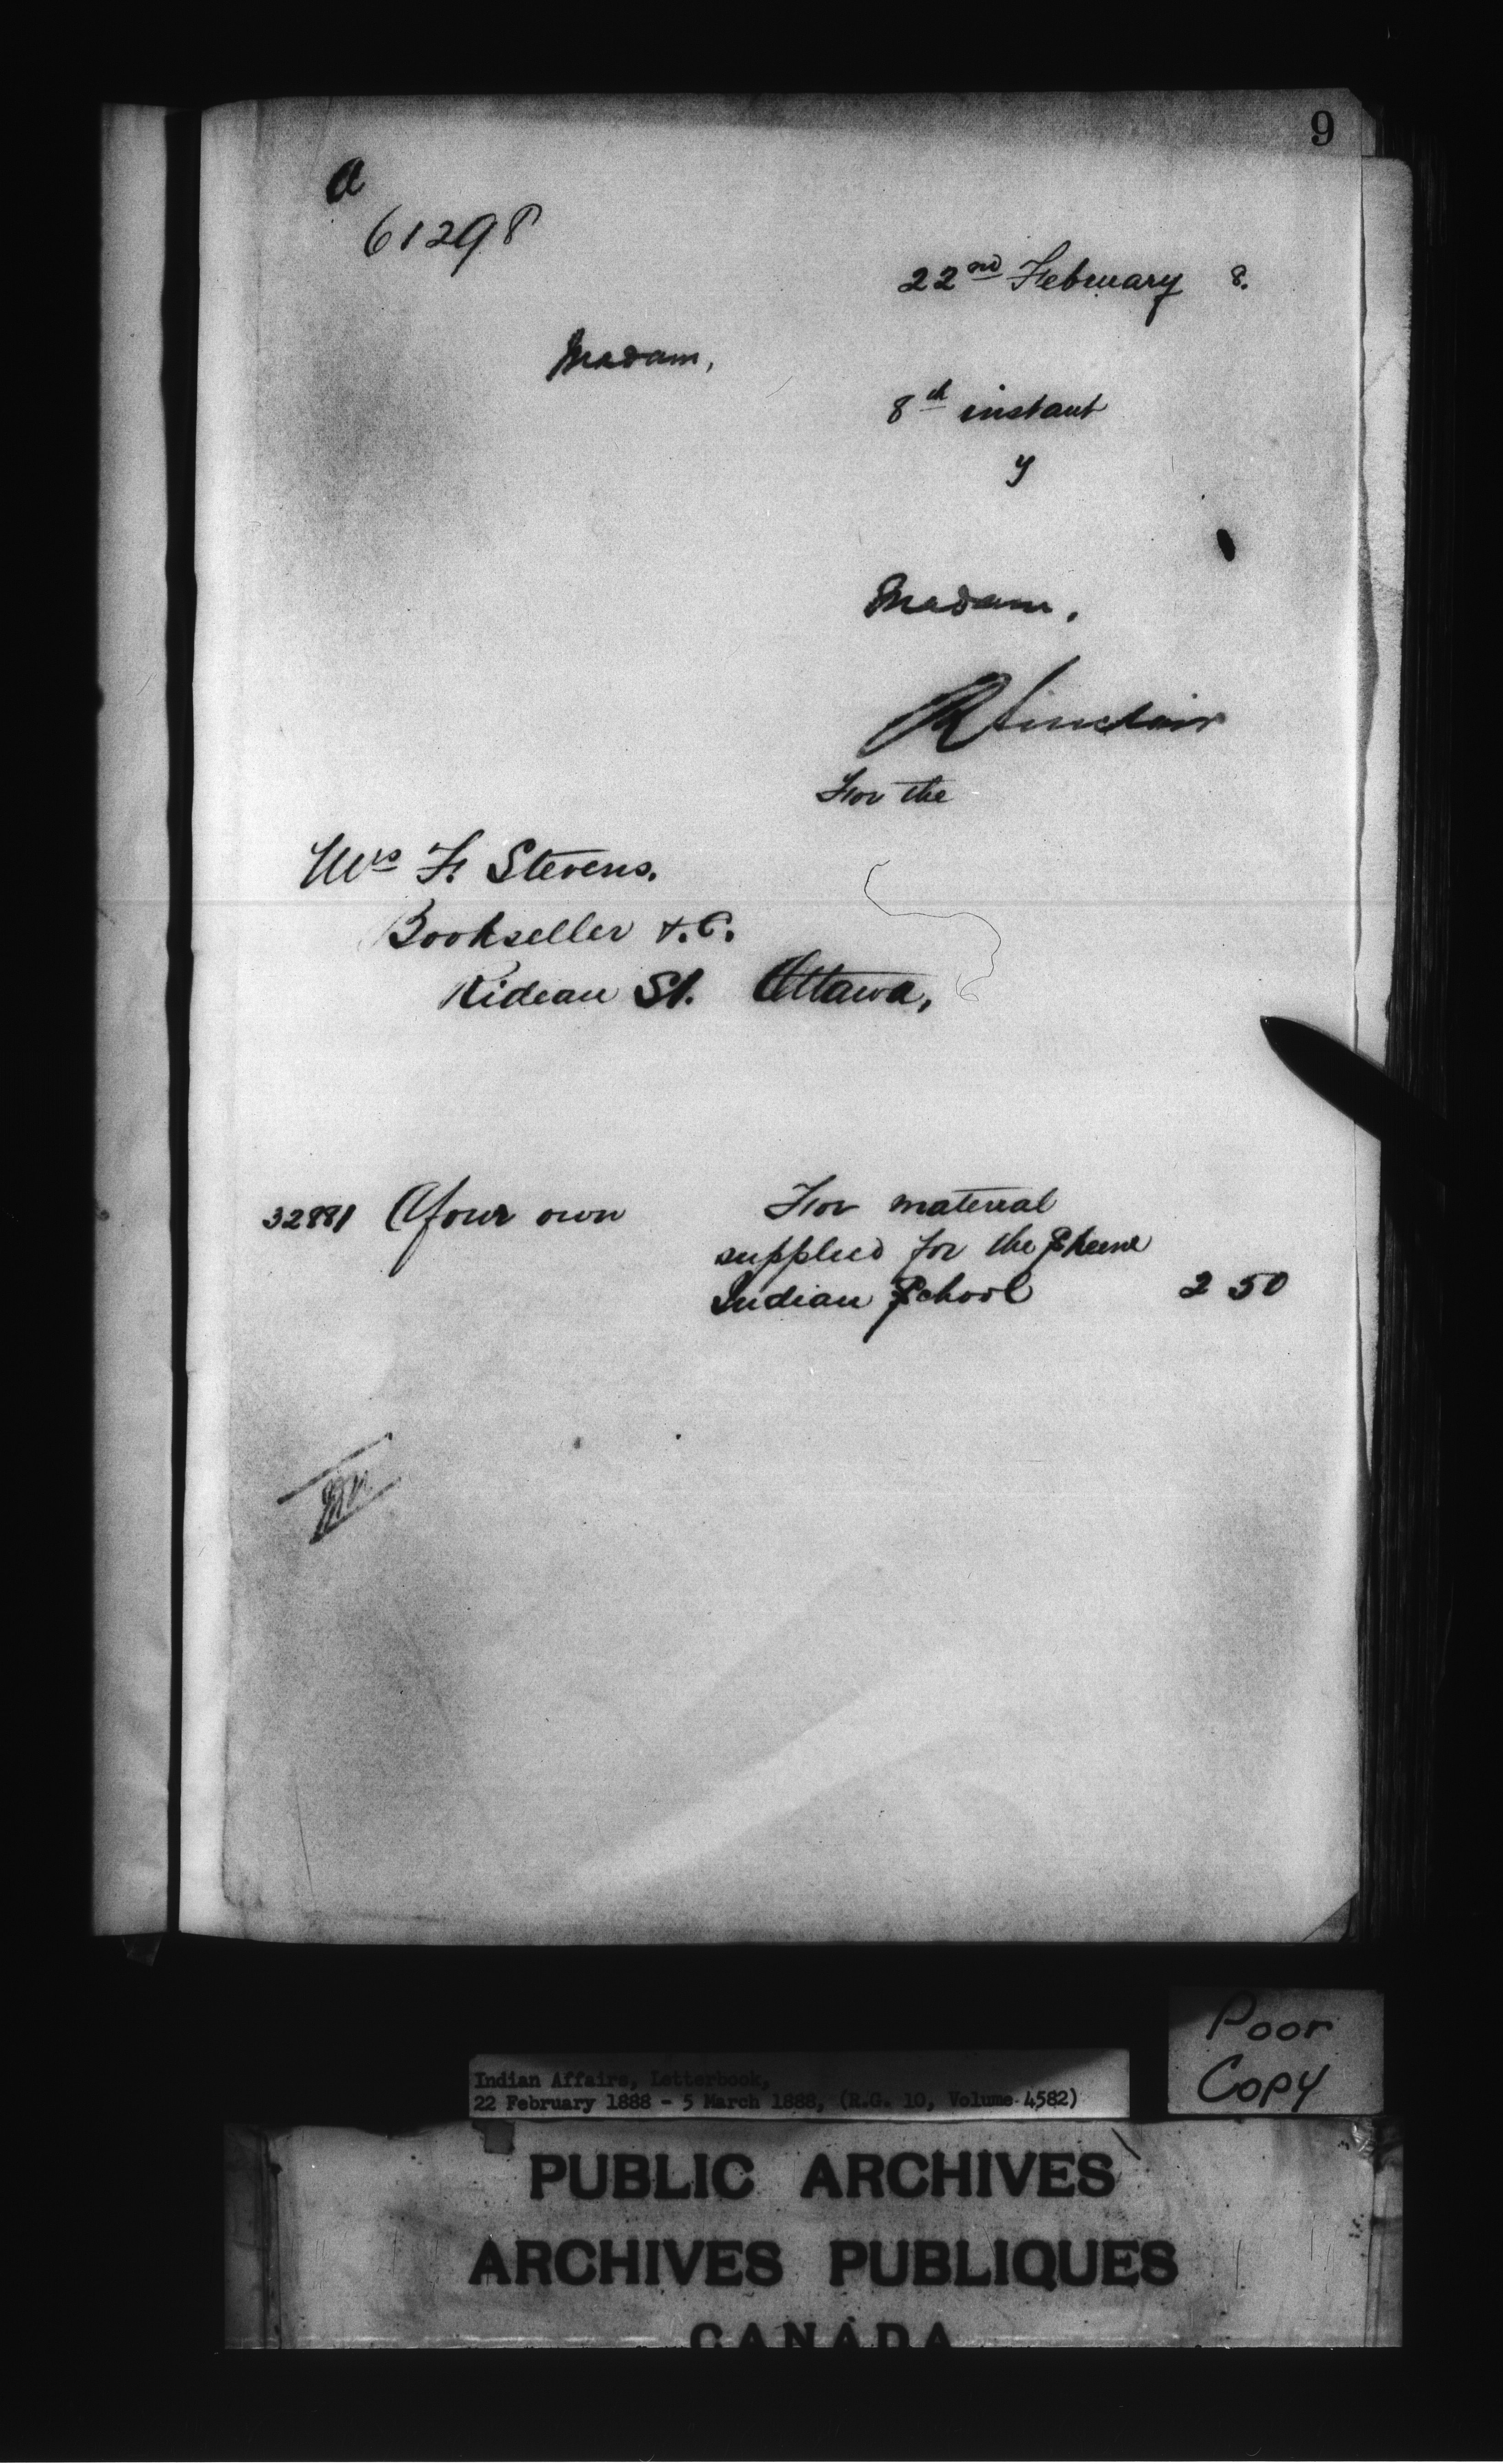 9
a
61298
22nd February 8.
Madam,
8th instant
y
Madam,
R Sinclair
For the
Mrs F. Stevens.
Bookseller &.C.
Rideau St. Ottawa,
32881 Of our own For material
supplied for the
Indian School 2 50
Poor
Copy
Indian Affairs, Letterbook,
22 February 1888 - 5 March 1888, (R.G. 10, Volume 4582)
PUBLIC ARCHIVES
ARCHIVES PUBLIQUES
CANADA